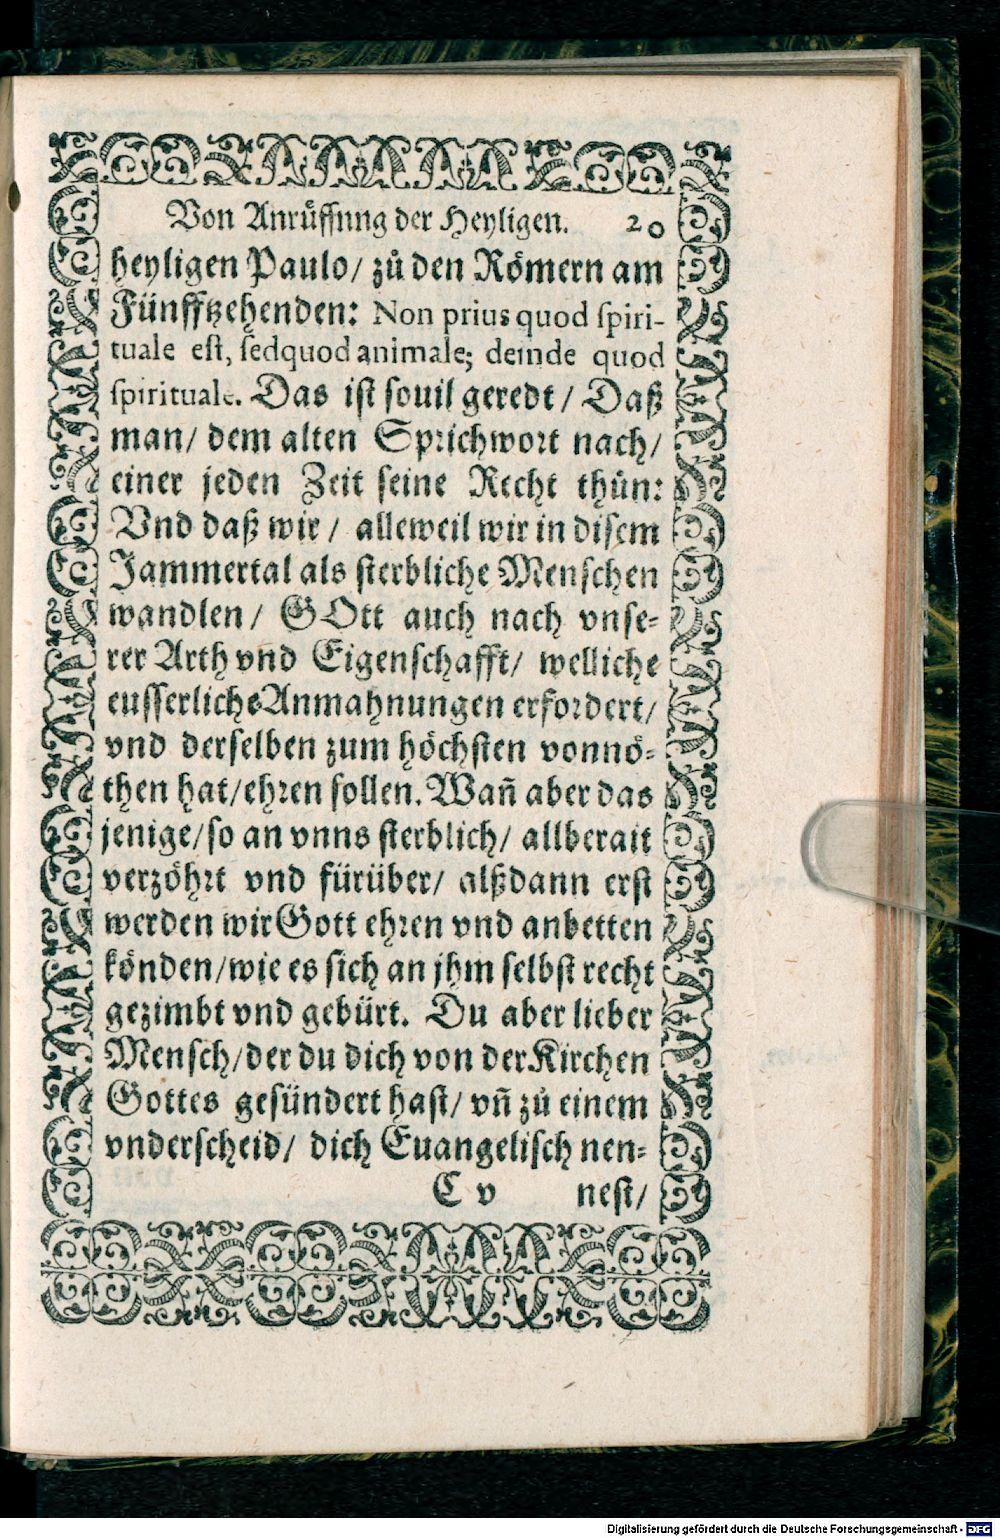 Von Anrůffung der Heyligen. 20
heyligen Paulo/ zů den Römern am
Fünfftzehenden: Non prius quod spiri-
tuale est, sedquod animale; deinde quod
spirituale. Das ist souil geredt/ Daß
man/ dem alten Sprichwort nach/
einer jeden Zeit seine Recht thün:
Vnd daß wir/ alleweil wir in disem
Jammertal als sterbliche Menschen
wandlen/ GOtt auch nach vnse-
rer Arth vnd Eigenschafft/ welliche
eusserliche Anmahnungen erfordert/
vnd derselben zum höchsten vonnö-
then hat/ehren sollen. Wañ aber das
jenige/so an vnns sterblich/ allberait
verzöhrt vnd fürüber/ alßdann erst
werden wir Gott ehren vnd anbetten
könden/wie es sich an jhm selbst recht
gezimbt vnd gebürt. Du aber lieber
Mensch/der du dich von der Kirchen
Gottes gesündert hast/ vñ zů einem
vnderscheid/ dich Euangelisch nen-
C v nest/
Digitalisierung gefördert durch die Deutsche Forschungsgemeinschaft - DFG